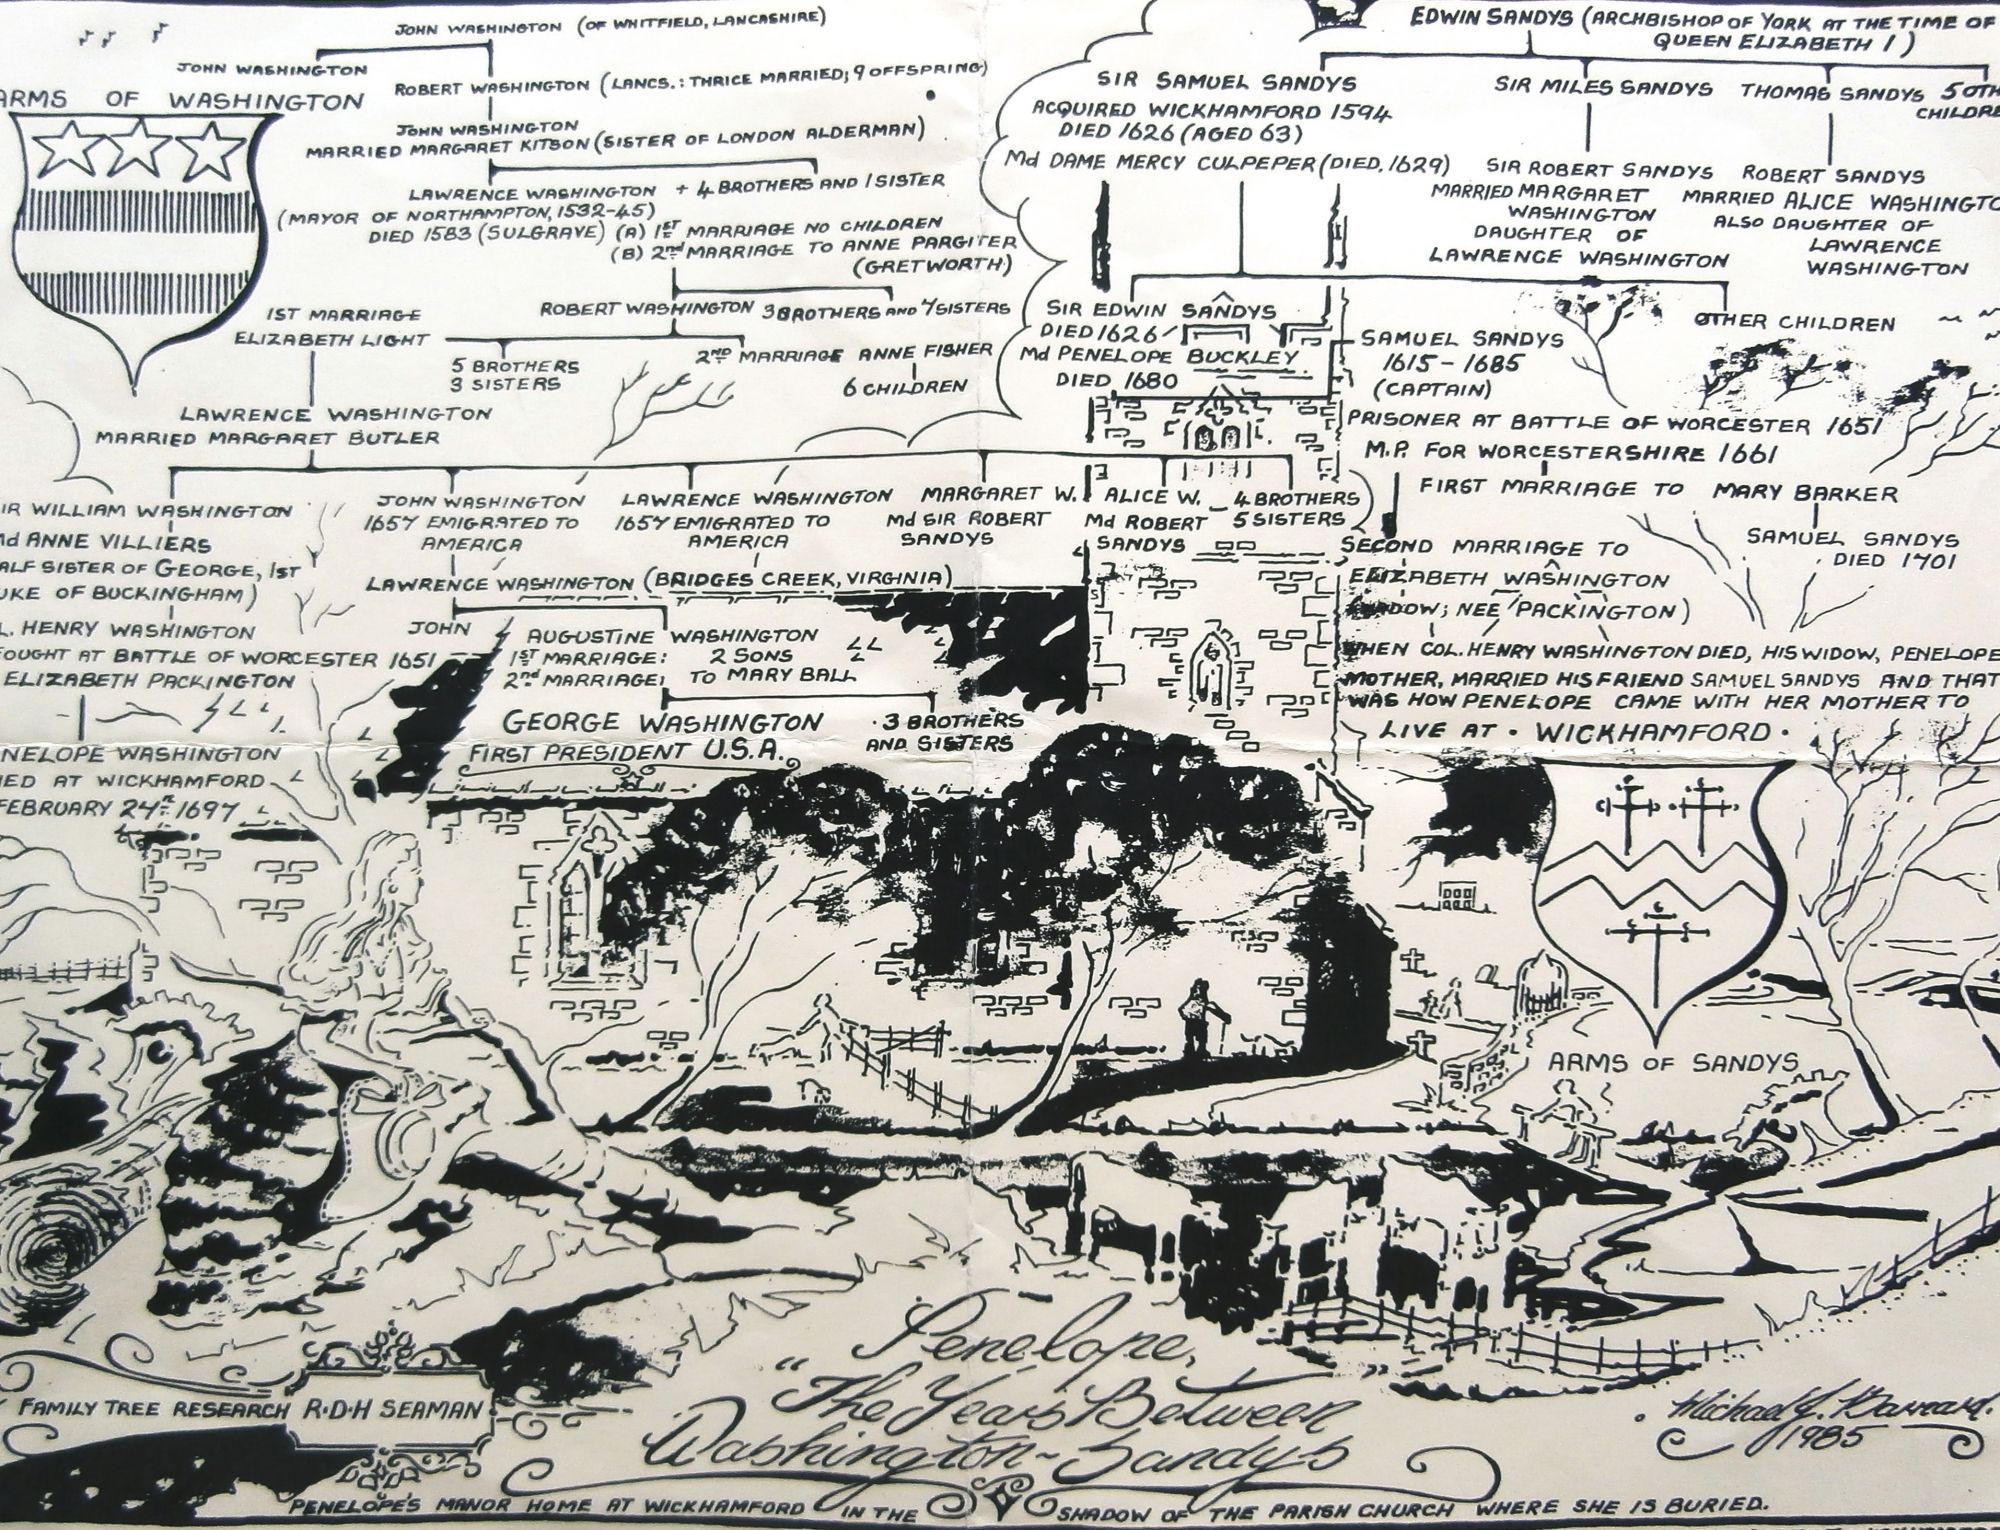 JOHN WASHINGTON (OF WHITFIELD, LANCASHIRE)
JOHN WASHINGTON
ROBERT WASHINGTON (LANCS.: THRICE MARRIED; 9 OFFSPRING)
ARMS OF WASHINGTON
JOHN WASHINGTON
MARRIED MARGARET KITSON (SISTER OF LONDON ALDERMAN)
LAWRENCE WASHINGTON + 4 BROTHERS AND 1 SISTER
(MAYOR OF NORTHAMPTON, 1532-45)
DIED 1583 (SULGRAVE) (A) 1ST MARRIAGE NO CHILDREN
(B) 2nd MARRIAGE TO ANNE PARGITER
(GRETWORTH)
ROBERT WASHINGTON 3 BROTHERS AND 7 SISTERS
1ST MARRIAGE
ELIZABETH LIGHT
5 BROTHERS
3 SISTERS
2ND MARRIAGE ANNE FISHER
6 CHILDREN
LAWRENCE WASHINGTON
MARRIED MARGARET BUTLER
IR WILLIAM WASHINGTON
Md ANNE VILLIERS
ALF SISTER OF GEORGE, 1ST
UKE OF BUCKINGHAM)
L. HENRY WASHINGTON
OUGHT AT BATTLE OF WORCESTER 1651
ELIZABETH PACKINGTON
NELOPE WASHINGTON
IED AT WICKHAMFORD
FEBRUARY 27TH 1697
JOHN WASHINGTON
1657 EMIGRATED TO
AMERICA
LAWRENCE WASHINGTON
1657 EMIGRATED TO
AMERICA
MARGARET W.
Md SIR ROBERT
SANDYS
ALICE W.
Md ROBERT
SANDYS
4 BROTHERS
5 SISTERS
LAWRENCE WASHINGTON (BRIDGES CREEK, VIRGINIA)
JOHN
AUGUSTINE WASHINGTON
1ST MARRIAGE: 2 SONS
2nd MARRIAGE: TO MARY BALL
GEORGE WASHINGTON
FIRST PRESIDENT U.S.A.
3 BROTHERS
AND SISTERS
EDWIN SANDYS (ARCHBISHOP OF YORK AT THE TIME OF
QUEEN ELIZABETH 1)
SIR SAMUEL SANDYS
ACQUIRED WICKHAMFORD 1594
DIED 1626 (AGED 63)
Md DAME MERCY CULPEPER (DIED, 1629)
SIR MILES SANDYS
THOMAS SANDYS
5 OTH
CHILDRE
SIR ROBERT SANDYS
MARRIED MARGARET
WASHINGTON
DAUGHTER OF
LAWRENCE WASHINGTON
ROBERT SANDYS
MARRIED ALICE WASHINGTO
ALSO DAUGHTER OF
LAWRENCE
WASHINGTON
SIR EDWIN SANDYS
DIED 1626
Md PENELOPE BUCKLEY
DIED 1680
OTHER CHILDREN
SAMUEL SANDYS
1615 - 1685
(CAPTAIN)
PRISONER AT BATTLE OF WORCESTER 1651
M.P. FOR WORCESTERSHIRE 1661
FIRST MARRIAGE TO MARY BARKER
SAMUEL SANDYS
DIED 1701
SECOND MARRIAGE TO
ELIZABETH WASHINGTON
(WIDOW; NEE PACKINGTON)
WHEN COL. HENRY WASHINGTON DIED, HIS WIDOW, PENELOPE
MOTHER, MARRIED HIS FRIEND SAMUEL SANDYS AND THAT
WAS HOW PENELOPE CAME WITH HER MOTHER TO
LIVE AT · WICKHAMFORD ·
ARMS OF SANDYS
Penelope,
"The Years Between
Washington-Sandys"
FAMILY TREE RESEARCH R.D.H SEAMAN
Michael J. Barnard.
1985
PENELOPE'S MANOR HOME AT WICKHAMFORD IN THE SHADOW OF THE PARISH CHURCH WHERE SHE IS BURIED.